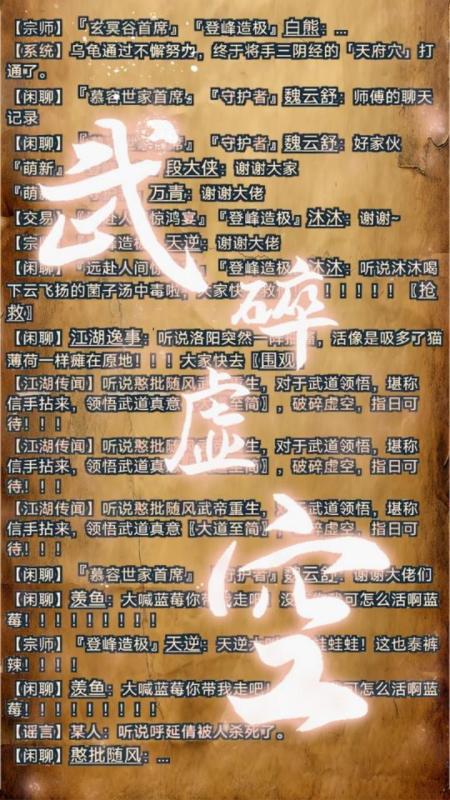 【宗师】『玄冥谷首席』『登峰造极』白熊：...
【系统】乌龟通过不懈努力，终于将手三阴经的「天府穴」打
通了。
【闲聊】『慕容世家首席』『守护者』魏云舒：师傅的聊天
记录
【闲聊】『守护者』魏云舒：好家伙
『萌新』段大侠：谢谢大家
『萌 万青：谢谢大佬
【交易 赴人 惊鸿宴』『登峰造极』沐沐：谢谢~
【宗 峰造极』天逆：谢谢大佬
【闲聊】『远赴人间惊 『登峰造极 沐沐：听说沐沐喝
下云飞扬的菌子汤中毒啦，大家快 救 ！！！！！〖抢
救〗
【闲聊】江湖逸事：听说洛阳突然一阵 ，活像是吸多了猫
薄荷一样瘫在原地！！！大家快去〖围观〗
【江湖传闻】听说憨批随风武帝重生，对于武道领悟，堪称
信手拈来，领悟武道真意〖大道至简〗，破碎虚空，指日可
待！！！
【江湖传闻】听说憨批随风武帝重生，对于武道领悟，堪称
信手拈来，领悟武道真意〖大道至简〗，破碎虚空，指日可
待！！！
【江湖传闻】听说憨批随风武帝重生，对于武道领悟，堪称
信手拈来，领悟武道真意〖大道至简〗，破碎虚空，指日可
待！！！
【闲聊】『慕容世家首席』『守护者』魏云舒：谢谢大佬们
【闲聊】羡鱼：大喊蓝莓你带我走吧！没 你我可怎么活啊蓝
莓！！！！！！！！！
【宗师】『登峰造极』天逆：天逆大 蛙蛙蛙！这也泰裤
辣！！！！
【闲聊】羡鱼：大喊蓝莓你带我走吧！ 可怎么活啊蓝
莓！！！！！！！！！
【谣言】某人：听说呼延倩被人杀死了。
【闲聊】憨批随风：...
武
碎
虚
空